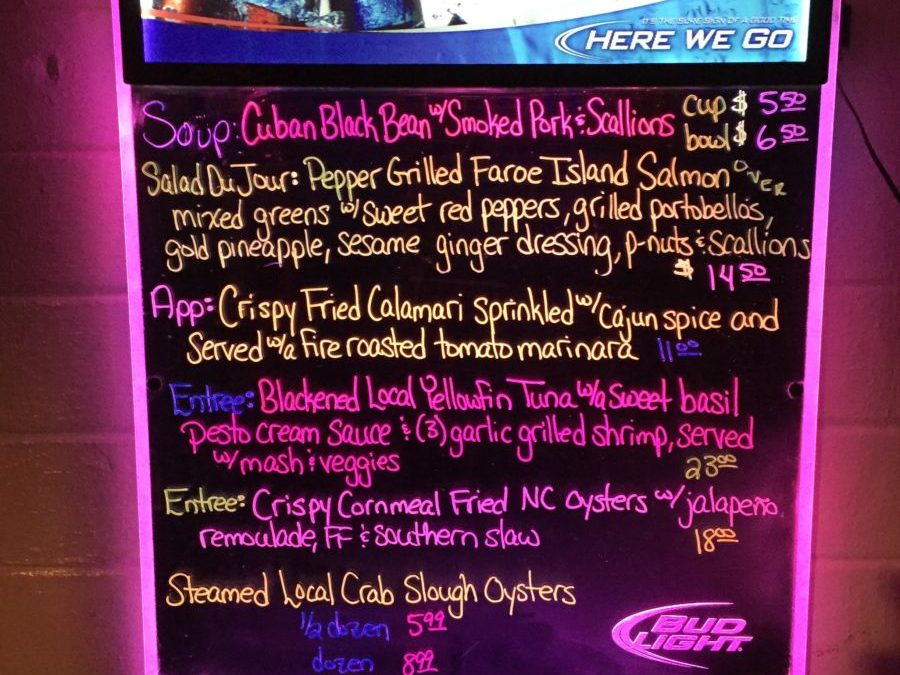 IT'S THE SURE SIGN OF A GOOD TIME
HERE WE GO
Soup: Cuban Black Bean w/ Smoked Pork & Scallions cup $ 5.50
bowl $ 6.50
Salad Du Jour: Pepper Grilled Faroe Island Salmon OVER
mixed greens w/ sweet red peppers, grilled portobellos,
gold pineapple, sesame ginger dressing, p-nuts & scallions
$ 14.50
App: Crispy Fried Calamari sprinkled w/ Cajun spice and
Served w/ a fire roasted tomato marinara 11.00
Entree: Blackened Local Yellowfin Tuna w/ a sweet basil
pesto cream sauce & (3) garlic grilled shrimp, served
w/ mash & veggies 23.00
Entree: Crispy Cornmeal Fried NC oysters w/ jalapeño
remoulade, FF & Southern slaw 18.00
Steamed Local Crab Slough Oysters
1/2 dozen 5.99
dozen 8.99
BUD
LIGHT